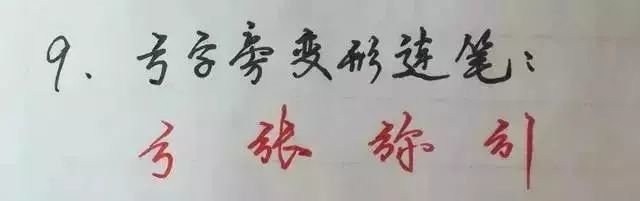 9、弓字旁变形连笔：
弓 张 弥 引